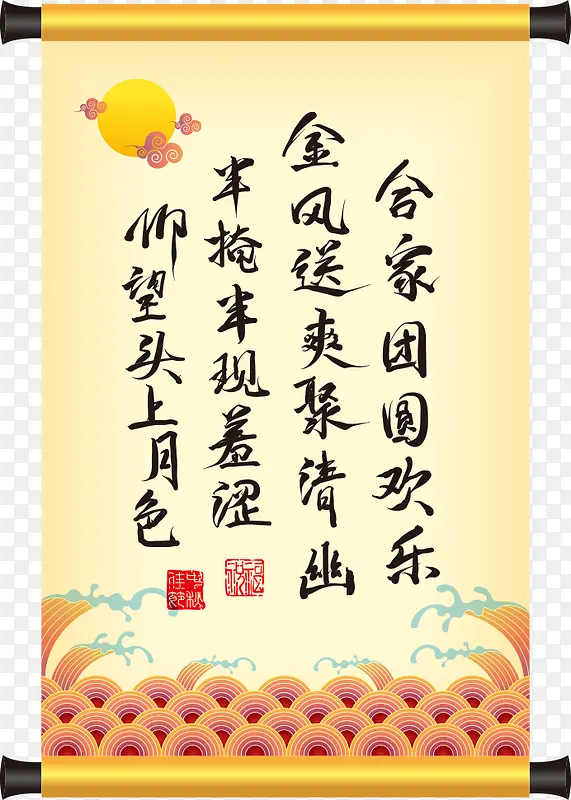 合家团圆欢乐
金风送爽聚清幽
半掩半现羞涩
仰望头上月色
祝福
中秋佳节